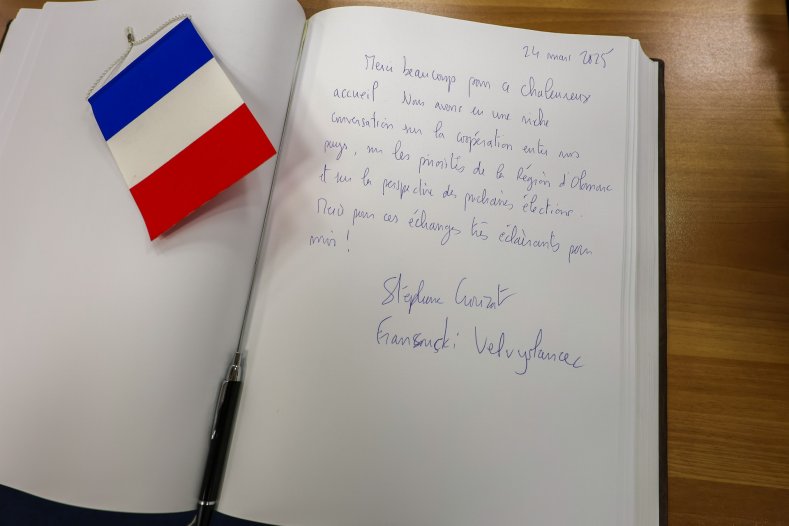 24 mars 2025
Merci beaucoup pour ce chaleureux
accueil. Nous avons eu une riche
conversation sur la coopération entre nos
pays, sur les priorités de la Région d'Olomouc
et sur la perspective des prochaines élections.
Merci pour ces échanges très éclairants pour
moi !
Stéphane Crouzat
Francouzski Velvyslanec